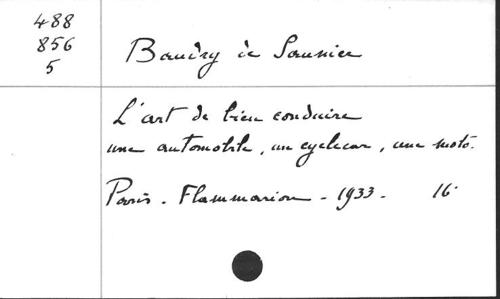 488
856
5
Baudry de Saunier
L'art de bien conduire
une automobile, un cyclecar, une moto.
Paris - Flammarion - 1933 - 16°